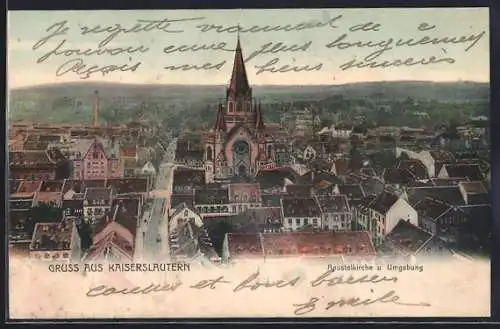 Je regrette vraiment de ne
pouvoir causer plus longuement
Reçois mes biens sincères
GRUSS AUS KAISERSLAUTERN
Apostelkirche u Umgebung
et bons baisers
Emile